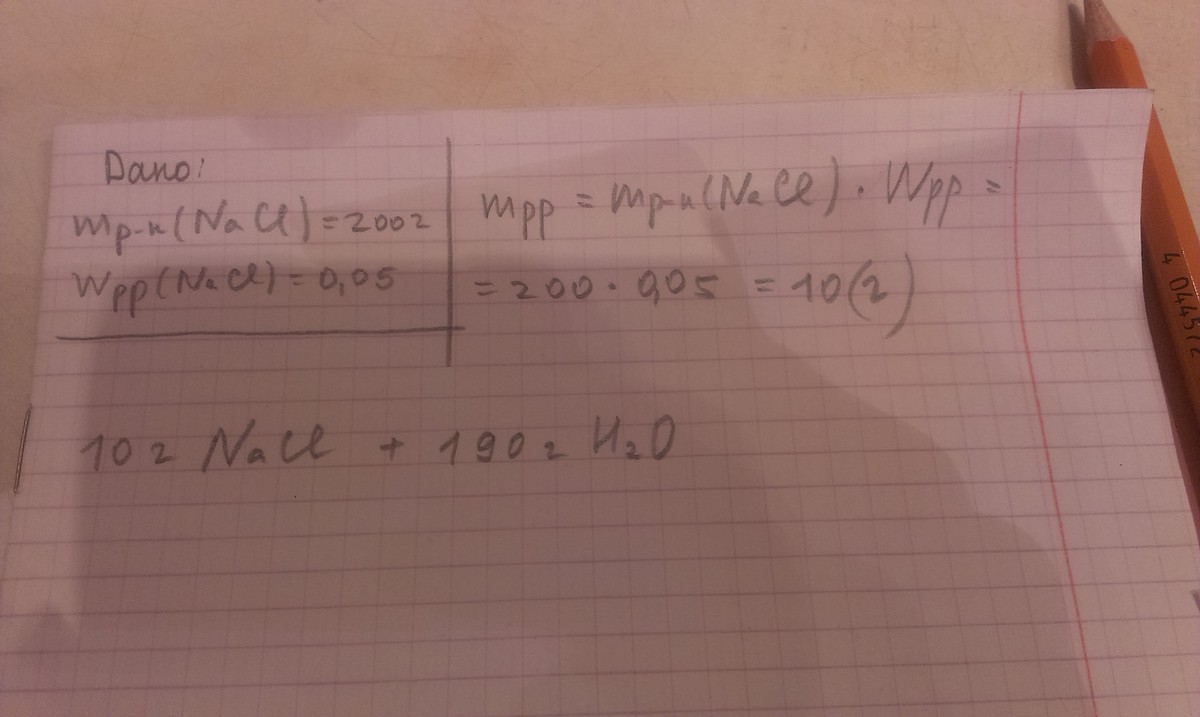 Дано:
mр-н(NaCl)=200г
Wрр(NaCl)=0,05
mрр = mр-н(NaCl)·Wрр =
=200·0,05 =10(г)
10г NaCl + 190г H₂O